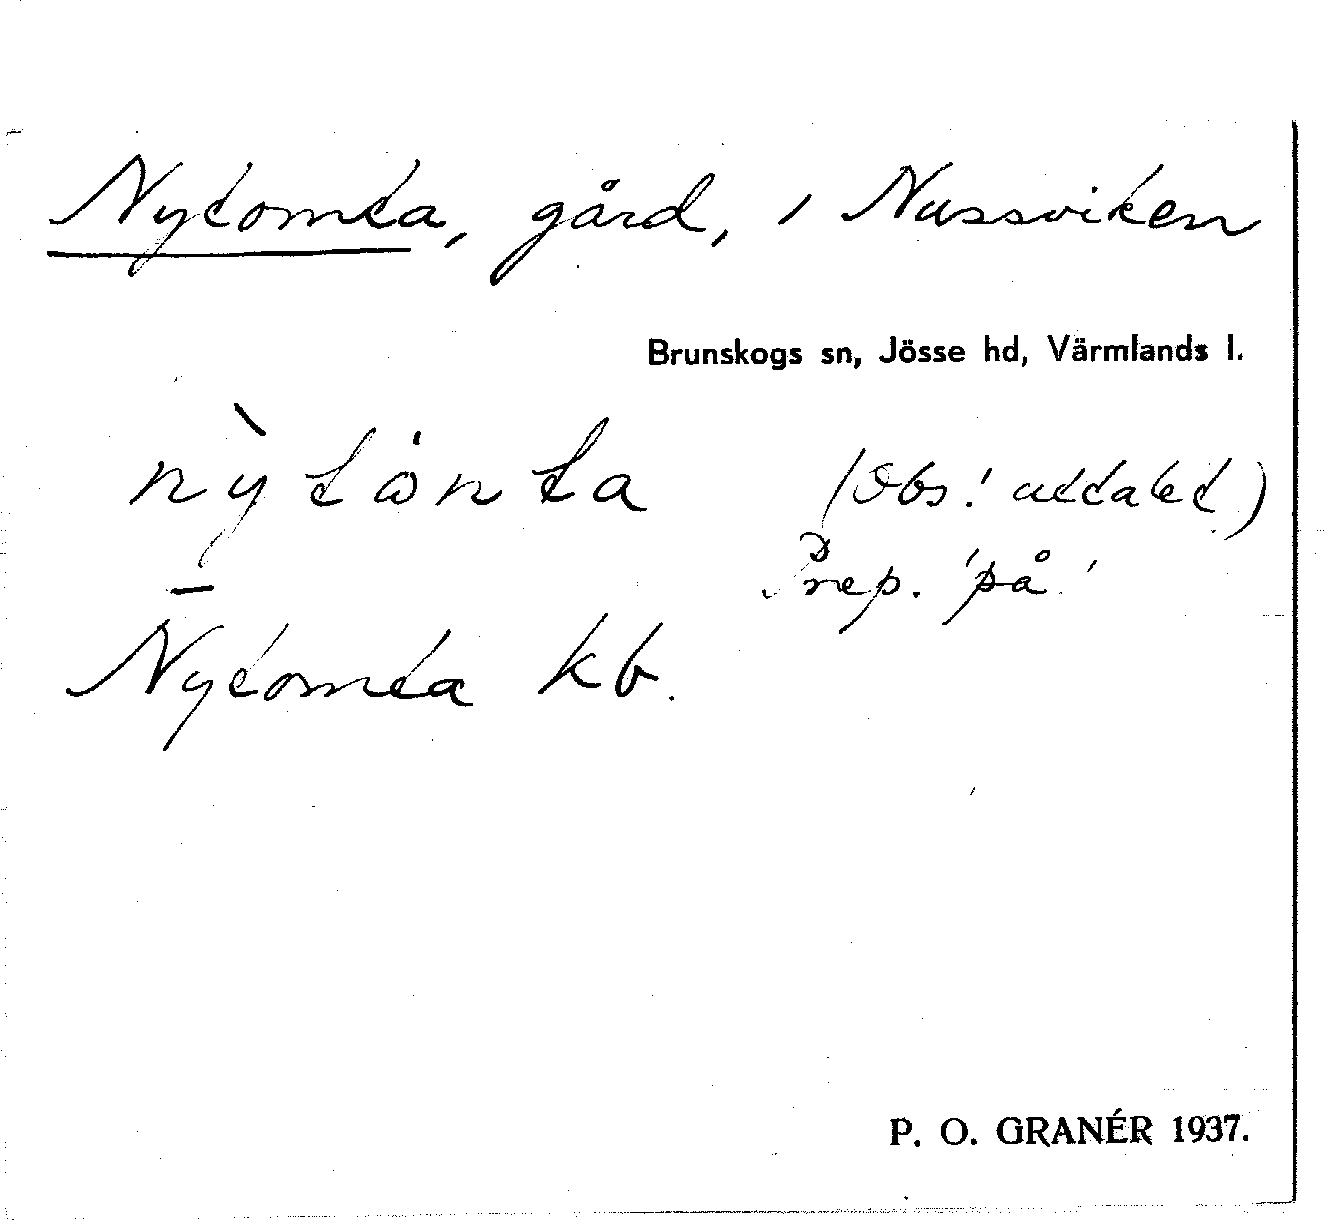 Nytomta, gård, i Nussviken
Brunskogs sn, Jösse hd, Värmlands l.
nỳtònta (Obs! uttalet)
Prep. 'på'
Nytomta kb.
P. O. GRANÉR 1937.